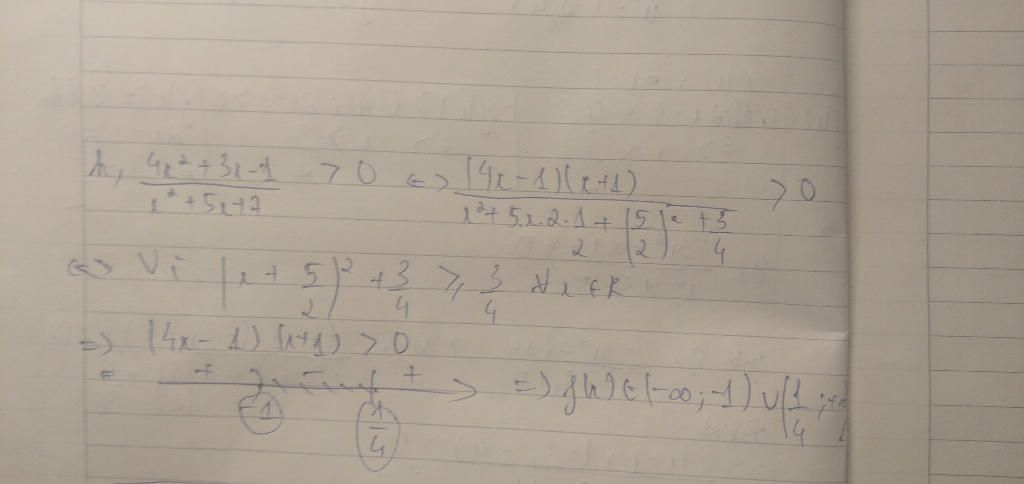 h, (4x² + 3x - 1)/(x² + 5x + 7) > 0 <=> (4x - 1)(x + 1)/(x² + 5.x.2.1/2 + (5/2)² + 3/4) > 0
<=> Vì (x + 5/2)² + 3/4 ≥ 3/4 ∀x ∈ R
=> (4x - 1)(x + 1) > 0
= + - + => f(x) ∈ (-∞; -1) ∪ (1/4; +∞)
-1 1/4